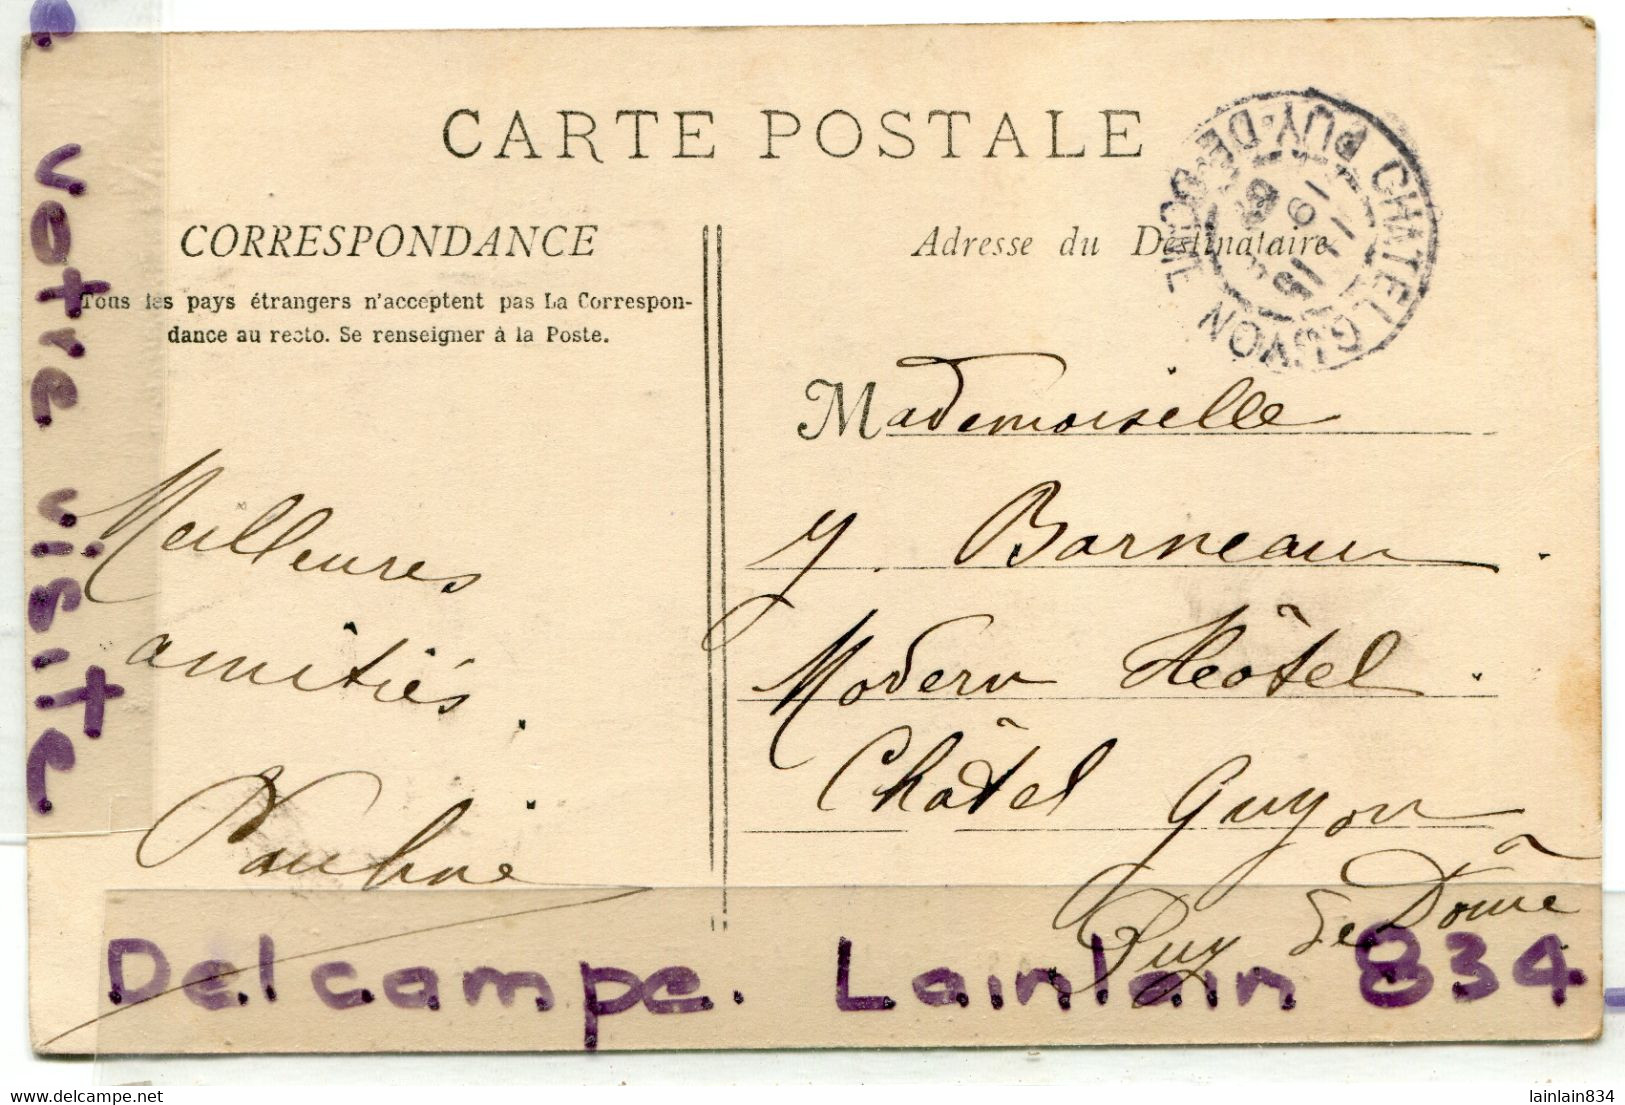 CARTE POSTALE
CORRESPONDANCE
Tous les pays étrangers n'acceptent pas La Correspon-
dance au recto. Se renseigner à la Poste.
Meilleures
amitiés.
Pauline
Adresse du Destinataire
CHATEL GUYON
PUY-DE-DOME
Mademoiselle
Y. Barneau
Modern Hôtel
Châtel Guyon
Puy de Dôme
votre visite
Delcampe. Lainlain 834
www.delcampe.net
lainlain834